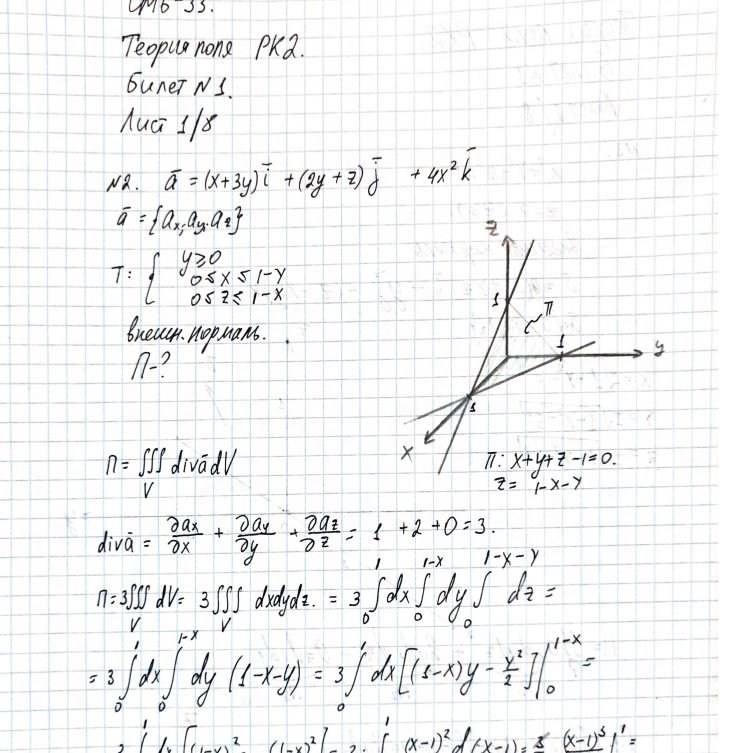 СМ6-33.
Теория поля РК2.
Билет N1.
Лист 1/8
N2. ā = (x+3y)ī + (2y+z)j̄ + 4x²k̄
ā = {ax; ay; az}
T: { y≥0
0≤x≤1-y
0≤z≤1-x
внешн. нормаль.
П-?
z
1
π
1
y
1
x
π: x+y+z-1=0.
z= 1-x-y
П = ∭_V divā dV
divā = ∂ax/∂x + ∂ay/∂y + ∂az/∂z = 1 +2 +0 = 3.
П = 3∭_V dV = 3∭_V dxdydz. = 3 ∫₀¹ dx ∫₀^(1-x) dy ∫₀^(1-x-y) dz =
= 3 ∫₀¹ dx ∫₀^(1-x) dy (1-x-y) = 3 ∫₀¹ dx [(1-x)y - y²/2] |₀^(1-x) =